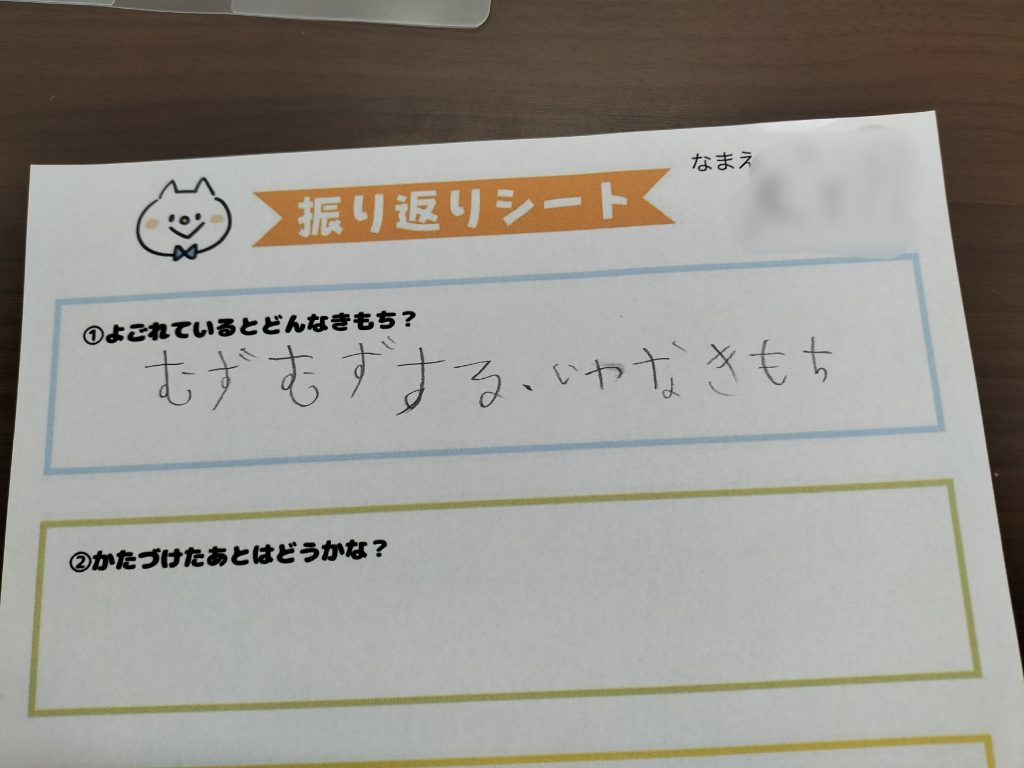 なまえ
振り返りシート
①よごれているとどんなきもち?
むずむずする、いやなきもち
②かたづけたあとはどうかな?